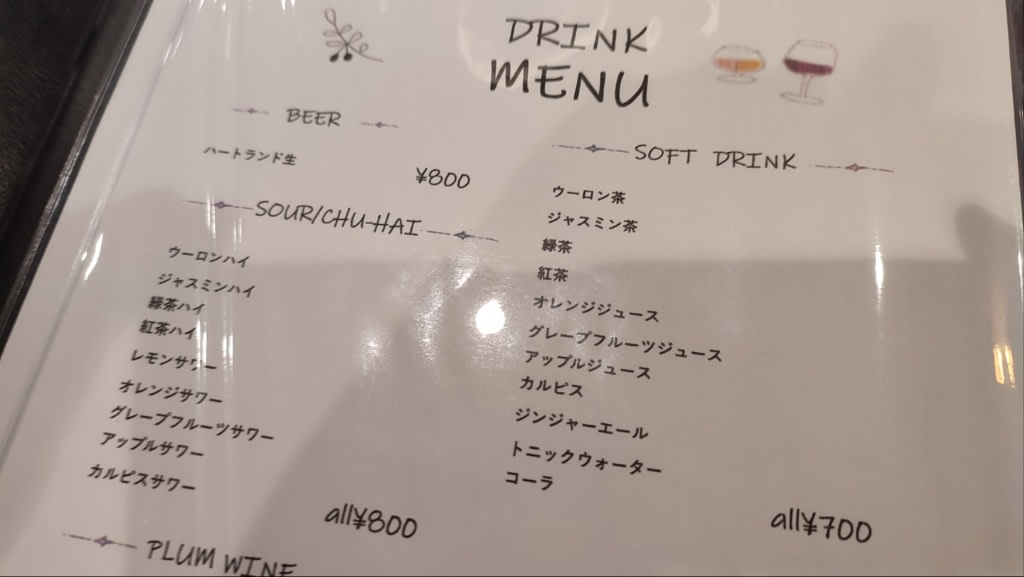 DRINK
MENU
BEER
ハートランド生
¥800
SOUR/CHU-HAI
ウーロンハイ
ジャスミンハイ
緑茶ハイ
紅茶ハイ
レモンサワー
オレンジサワー
グレープフルーツサワー
アップルサワー
カルピスサワー
all¥800
PLUM WINE
SOFT DRINK
ウーロン茶
ジャスミン茶
緑茶
紅茶
オレンジジュース
グレープフルーツジュース
アップルジュース
カルピス
ジンジャーエール
トニックウォーター
コーラ
all¥700